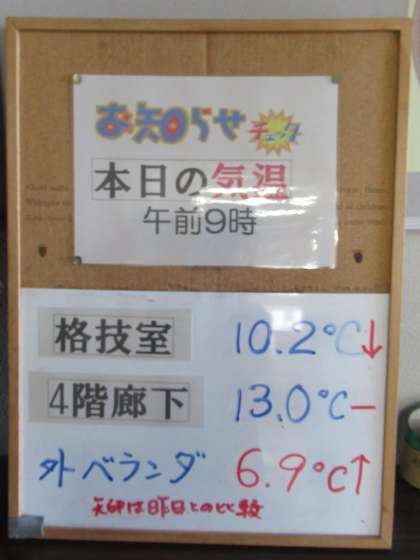 お知らせ チェック
本日の気温
午前9時
格技室 10.2℃↓
4階廊下 13.0℃−
外ベランダ 6.9℃↑
矢印は昨日との比較